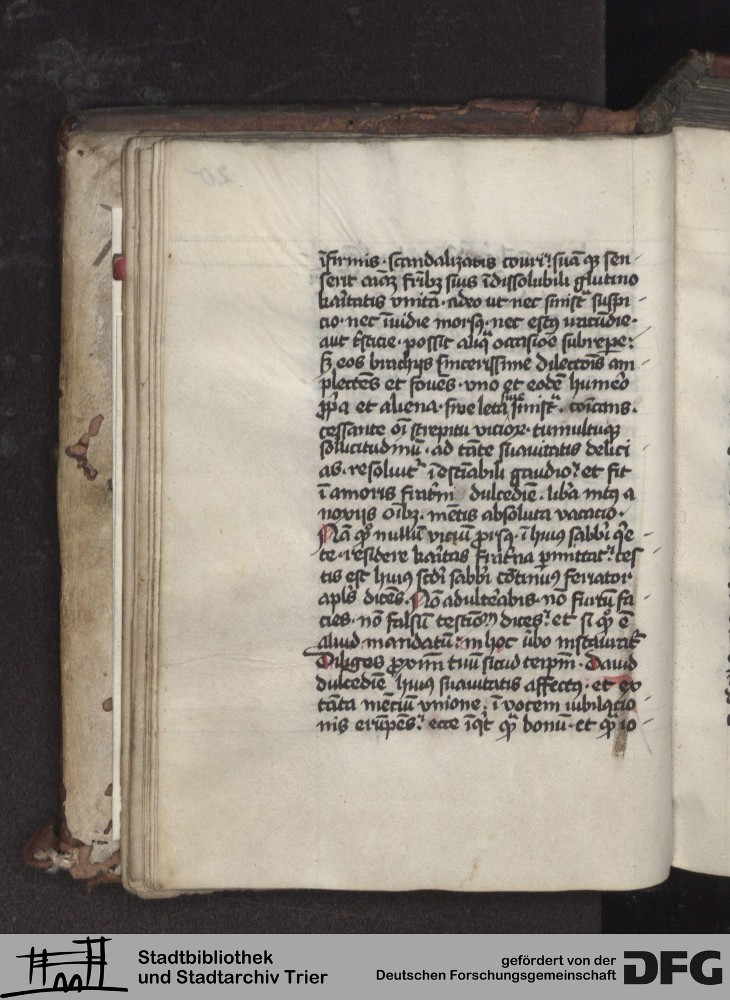 īfirmis · scandalizatis couriꝰ suā qꝫ sen
serit aīaꝫ frībꝫ suis īdissolubili glutino
kaītatis vnitā · adeo ut nec sinistᵃ suspi
cio · nec īuidie morsꝰ · nec estꝰ iracūdie ·
aut tsticie · possit aliqᵃ occasiōe subrepere:
sꝫ eos brachijs sincerissime dilectōis am
plectēs et fouēs · vno et eodē humeo
ꝓpa et aliena · siue leta siue sinistᵃ · cōicans ·
cessante oī strepitu vicioꝝ · tumultuqꝫ
solicitudinū · ad tāte suauitatis delici
as · resoluitʳ īestiabili gaudio: et fit
ī amoris fratni dulcedie · liba mtꝰ a
noxijs oībꝫ · mētis absoluta vacatio ·
Nā qꝫ nullū vicium ꝓrsꝰ · ī huiꝰ sabbi qe
te · residere kaītas fratna pmittat: tes
tis est huiꝰ scdi sabbi cōtinuꝰ feriator
apls dicēs · Nō adulteabis · nō furtū fa
cies · nō falsū testioniū dices: et si qꝫ ē
aliud mandatū: in hoc ūbo instauratʳ
Diliges ꝓximū tuū sicud teipm · Dauid
dulcedie huiꝰ suauitatis affectꝰ · et ex
tāta mētiū vnione · ī vocem iubilacio
nis erūpēs: ecce īqt qᵃ bonū · et qᵃ io
Stadtbibliothek
und Stadtarchiv Trier
gefördert von der
Deutschen Forschungsgemeinschaft
DFG